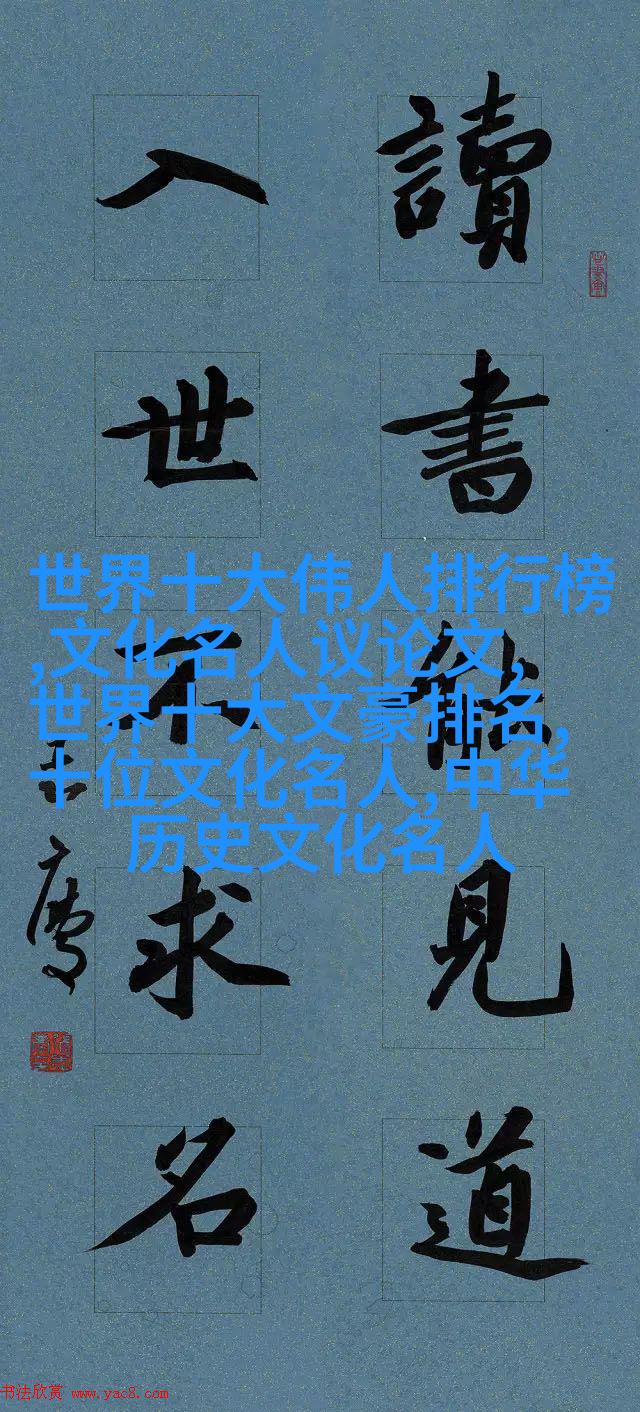 讀書能見道
入世不求名
世界十大伟人排行榜
,文化名人议论文,
世界十大文豪排名,
十位文化名人,中华
历史文化名人
书法欣赏 www.yac8.com